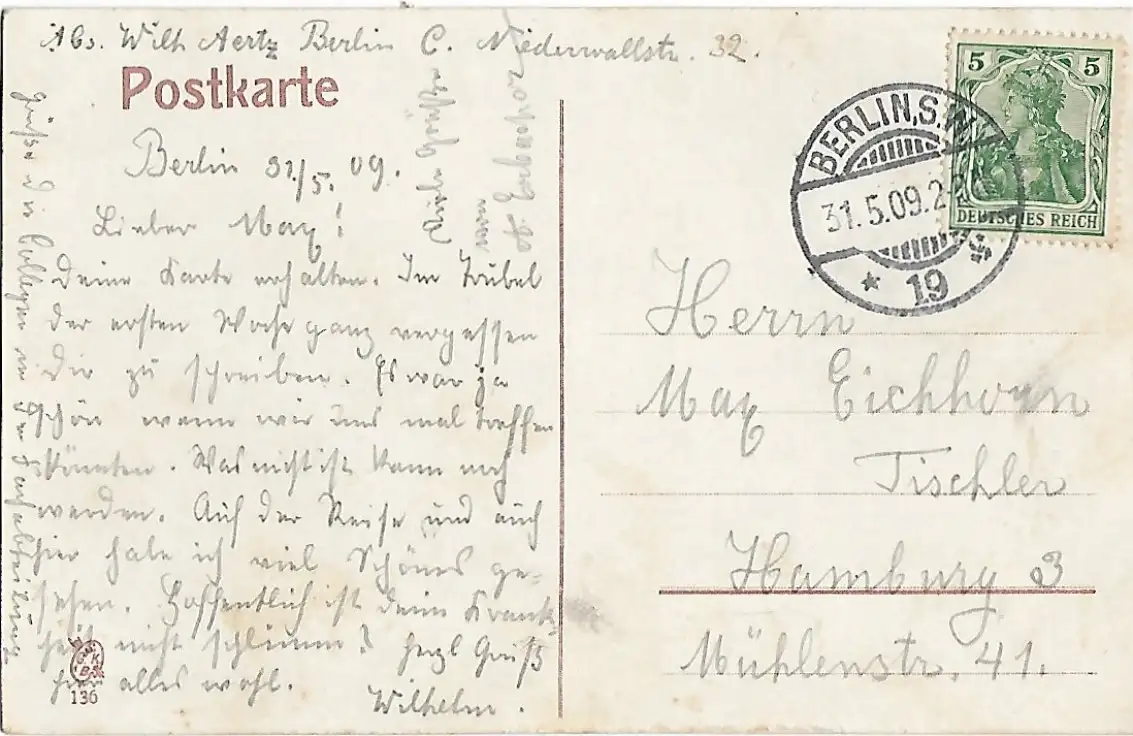 Abs. Wilh Aertz Berlin C. Niederwallstr. 32.
Postkarte
Berlin 31/5. 09.
Lieber Max!
Deine Karte erhalten. Im Trubel
der ersten Woche ganz vergessen
Dir zu schreiben. Es war ja
schön wenn wir uns mal treffen
könnten. Was nicht ist kann noch
werden. Auf der Reise und auch
hier habe ich viel Schönes ge=
sehen. Hoffentlich ist deine Krank=
heit nicht schlimm? herzl Gruß
hier alles wohl.
Wilhelm.
Grüße die Collegen in der Fachabteilung
Viele Grüße
von
A.
136
BERLIN, S.W.
31.5.09.2
* 19
5 5
DEUTSCHES REICH
Herrn
Max Eichhorn
Tischler
Hamburg 3
Mühlenstr. 41.